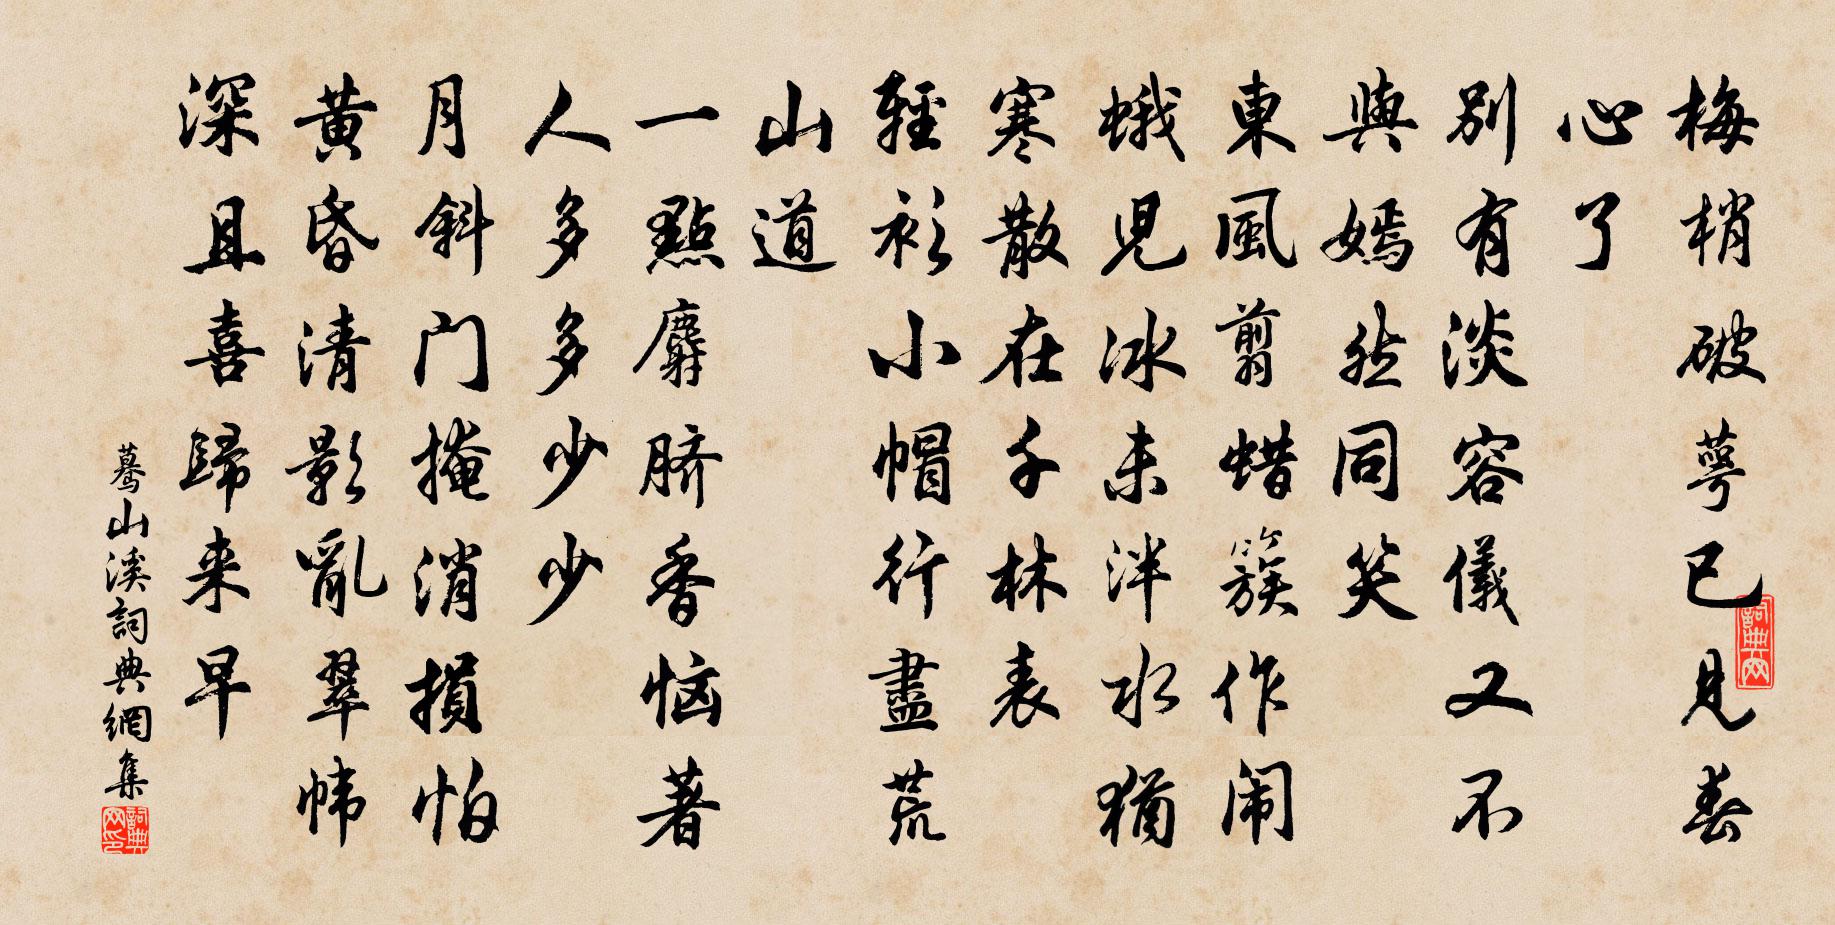 梅梢破萼已見春
心了
別有淡容儀又不
與嫣然同笑
東風翦蜡簇作闹
蛾兒冰未泮水猶
寒散在千林表
輕衫小帽行盡荒
山道
一點麝脐香恼著
人多多少少
月斜门掩消損怕
黃昏清影亂翠帏
深且喜歸来早
驀山溪詞典網集
詞典网
詞典网印